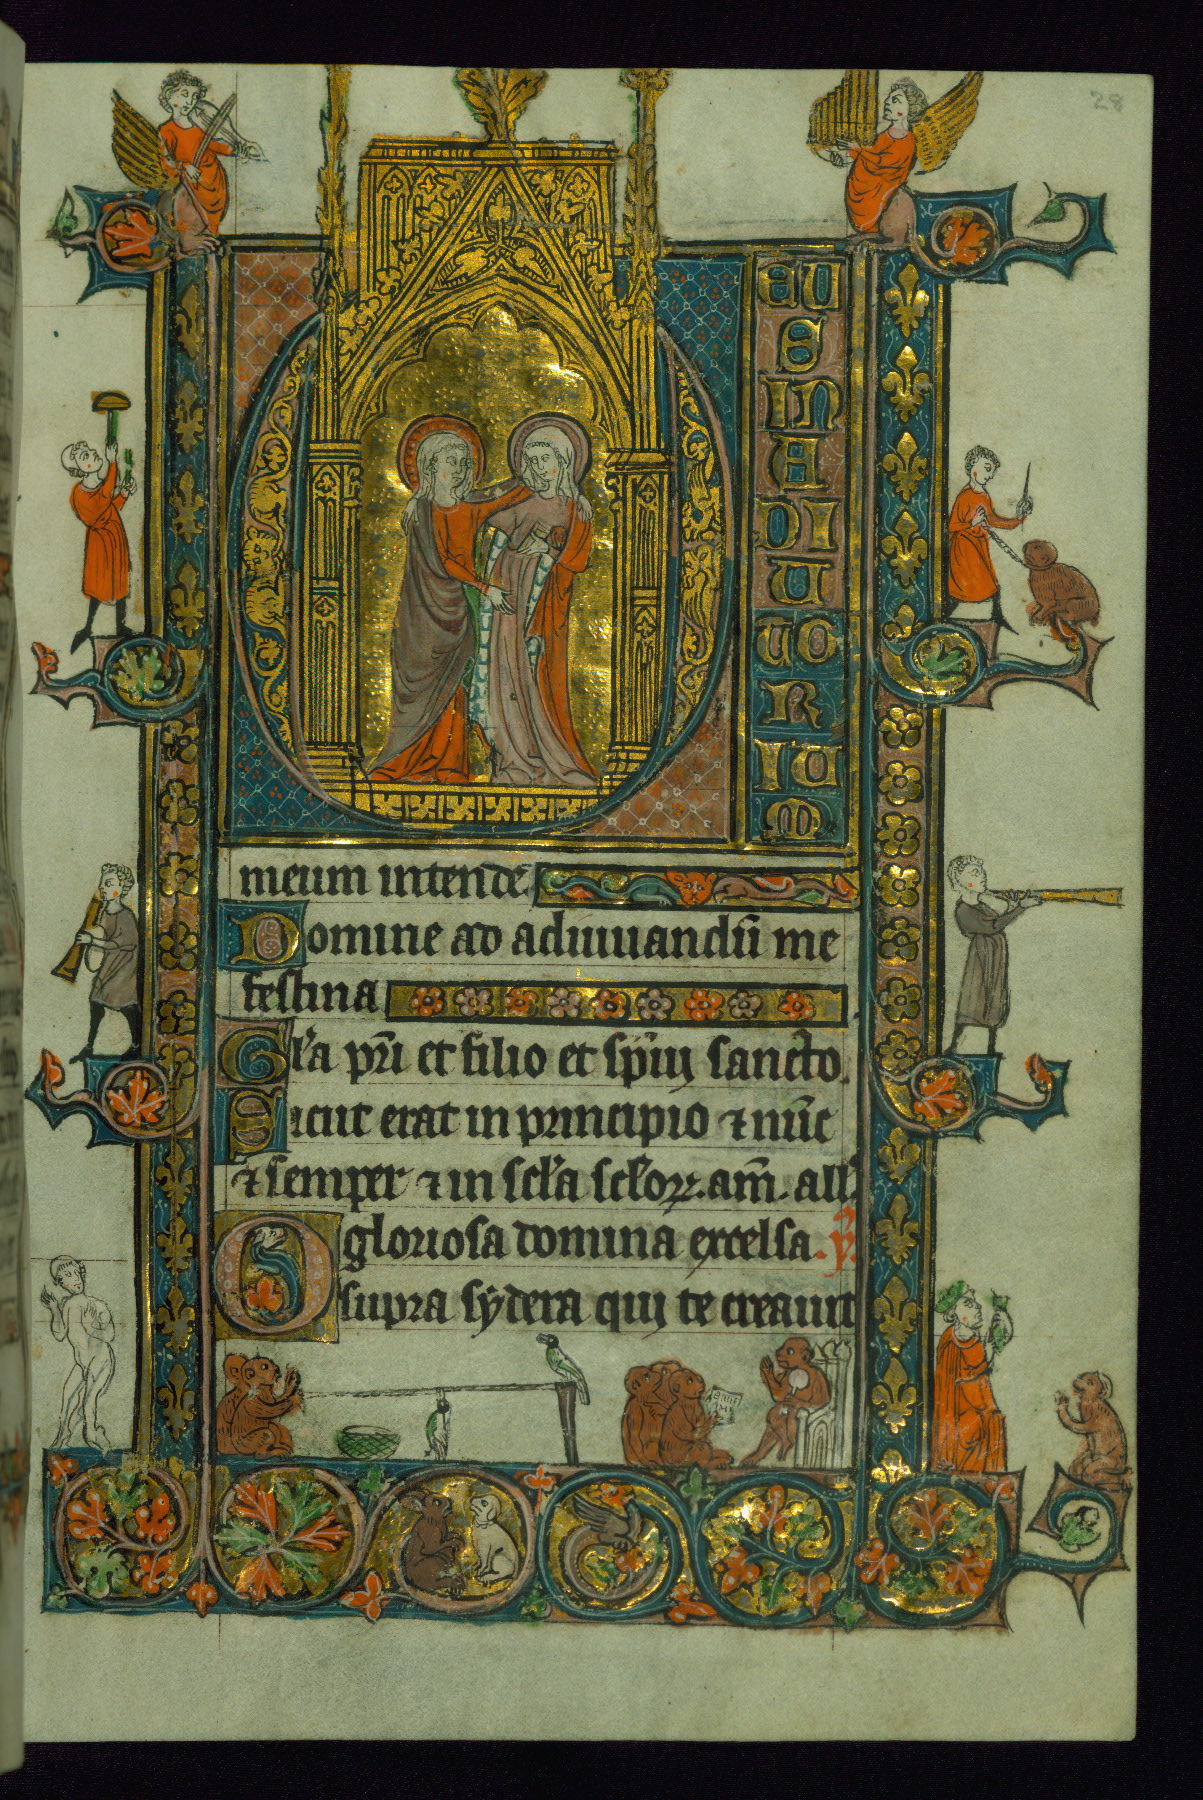 28
D
AU
S
IN
A
DI
U
TO
R
IU
M
meum intende
Domine ad adiuuandū me
festina
Gl'a pr̄i et filio et sp̄ui sancto.
Sicut erat in principio ⁊ nūc
⁊ semper ⁊ in sc̄l'a sc̄l'oꝝ. am̄. all'.
O gloriosa domina excelsa. ẏ.
supra sẏdera qui te creauit